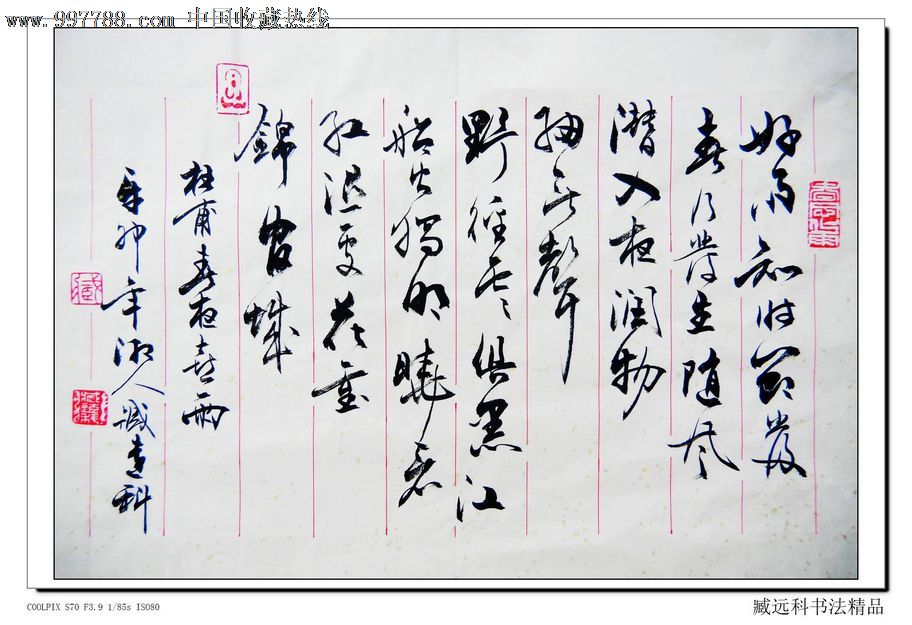 www.997788.com 中国收藏热线
好雨知时節當
春乃發生随风
潜入夜润物
细无聲
野径云俱黑江
船火獨明曉看
红湿處花重
錦官城
杜甫春夜喜雨
辛卯年湘人臧远科
臧
COOLPIX S70 F3.9 1/85s ISO80
臧远科书法精品